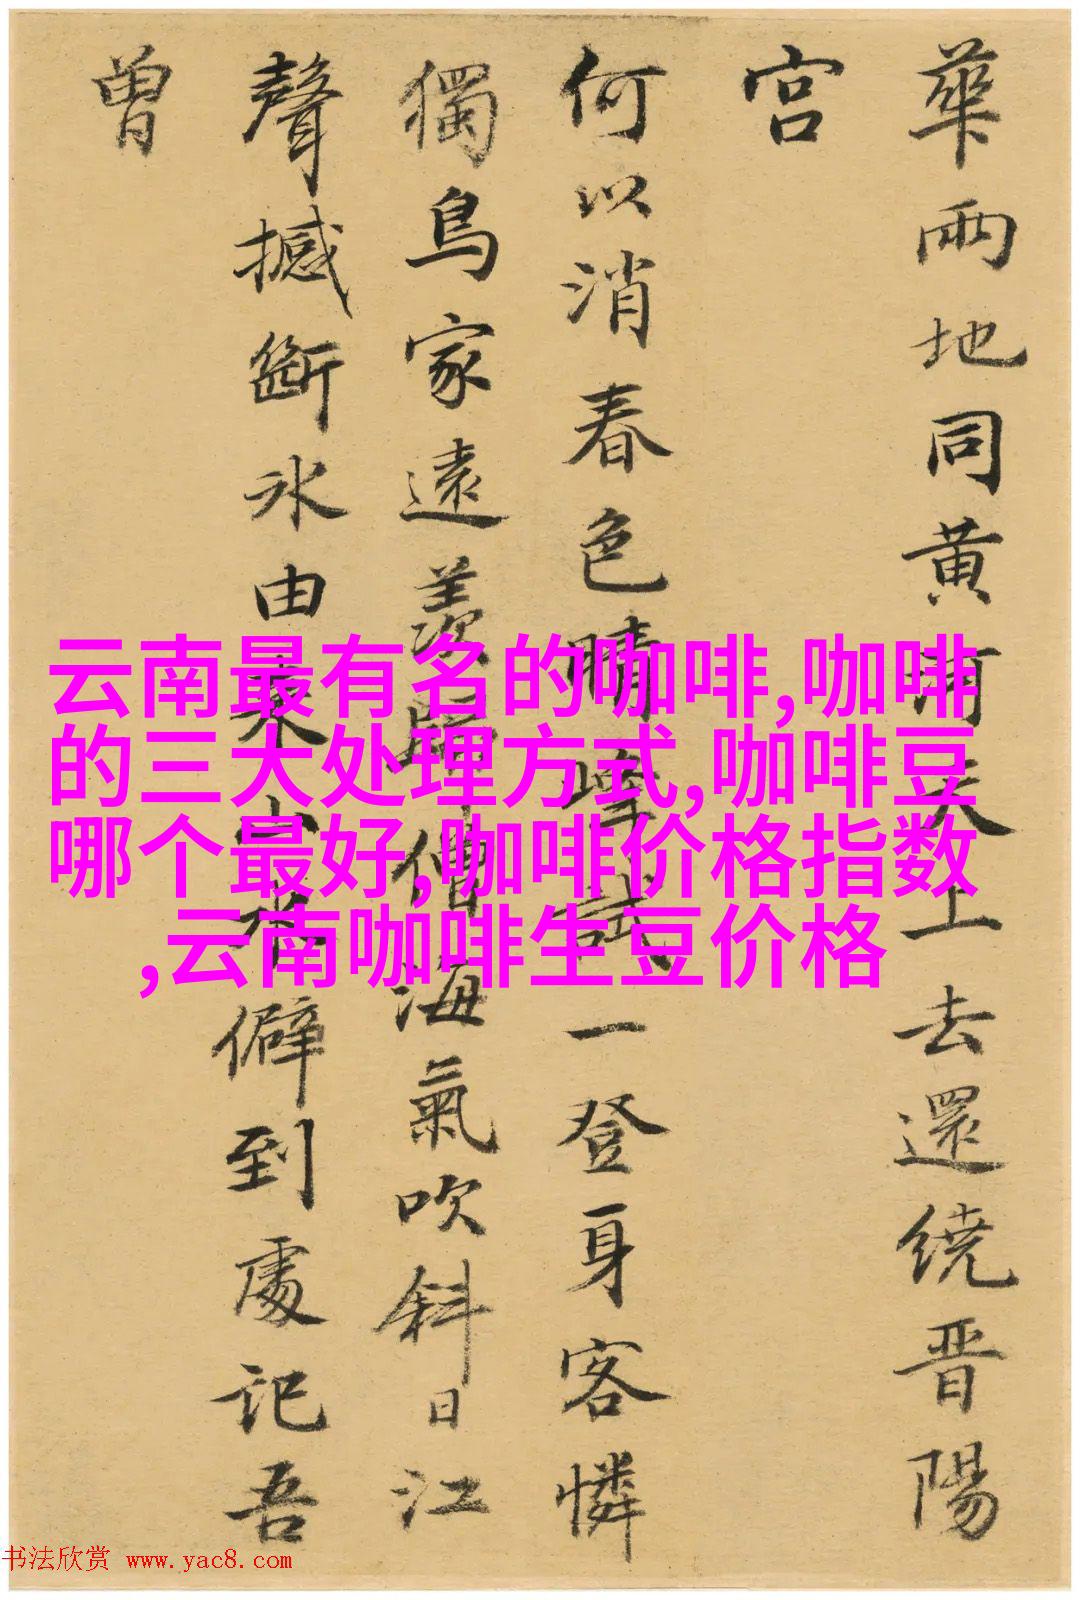 華兩地同黄河天上去還繞晋陽
宫
何以消春色晴峰試一登身客憐
獨鳥家遠羨歸僧海氣吹斜日江
聲撼斷氷由来山水僻到處記吾
曾
云南最有名的咖啡,咖啡
的三大处理方式,咖啡豆
哪个最好,咖啡价格指数
,云南咖啡生豆价格
书法欣赏 www.yac8.com